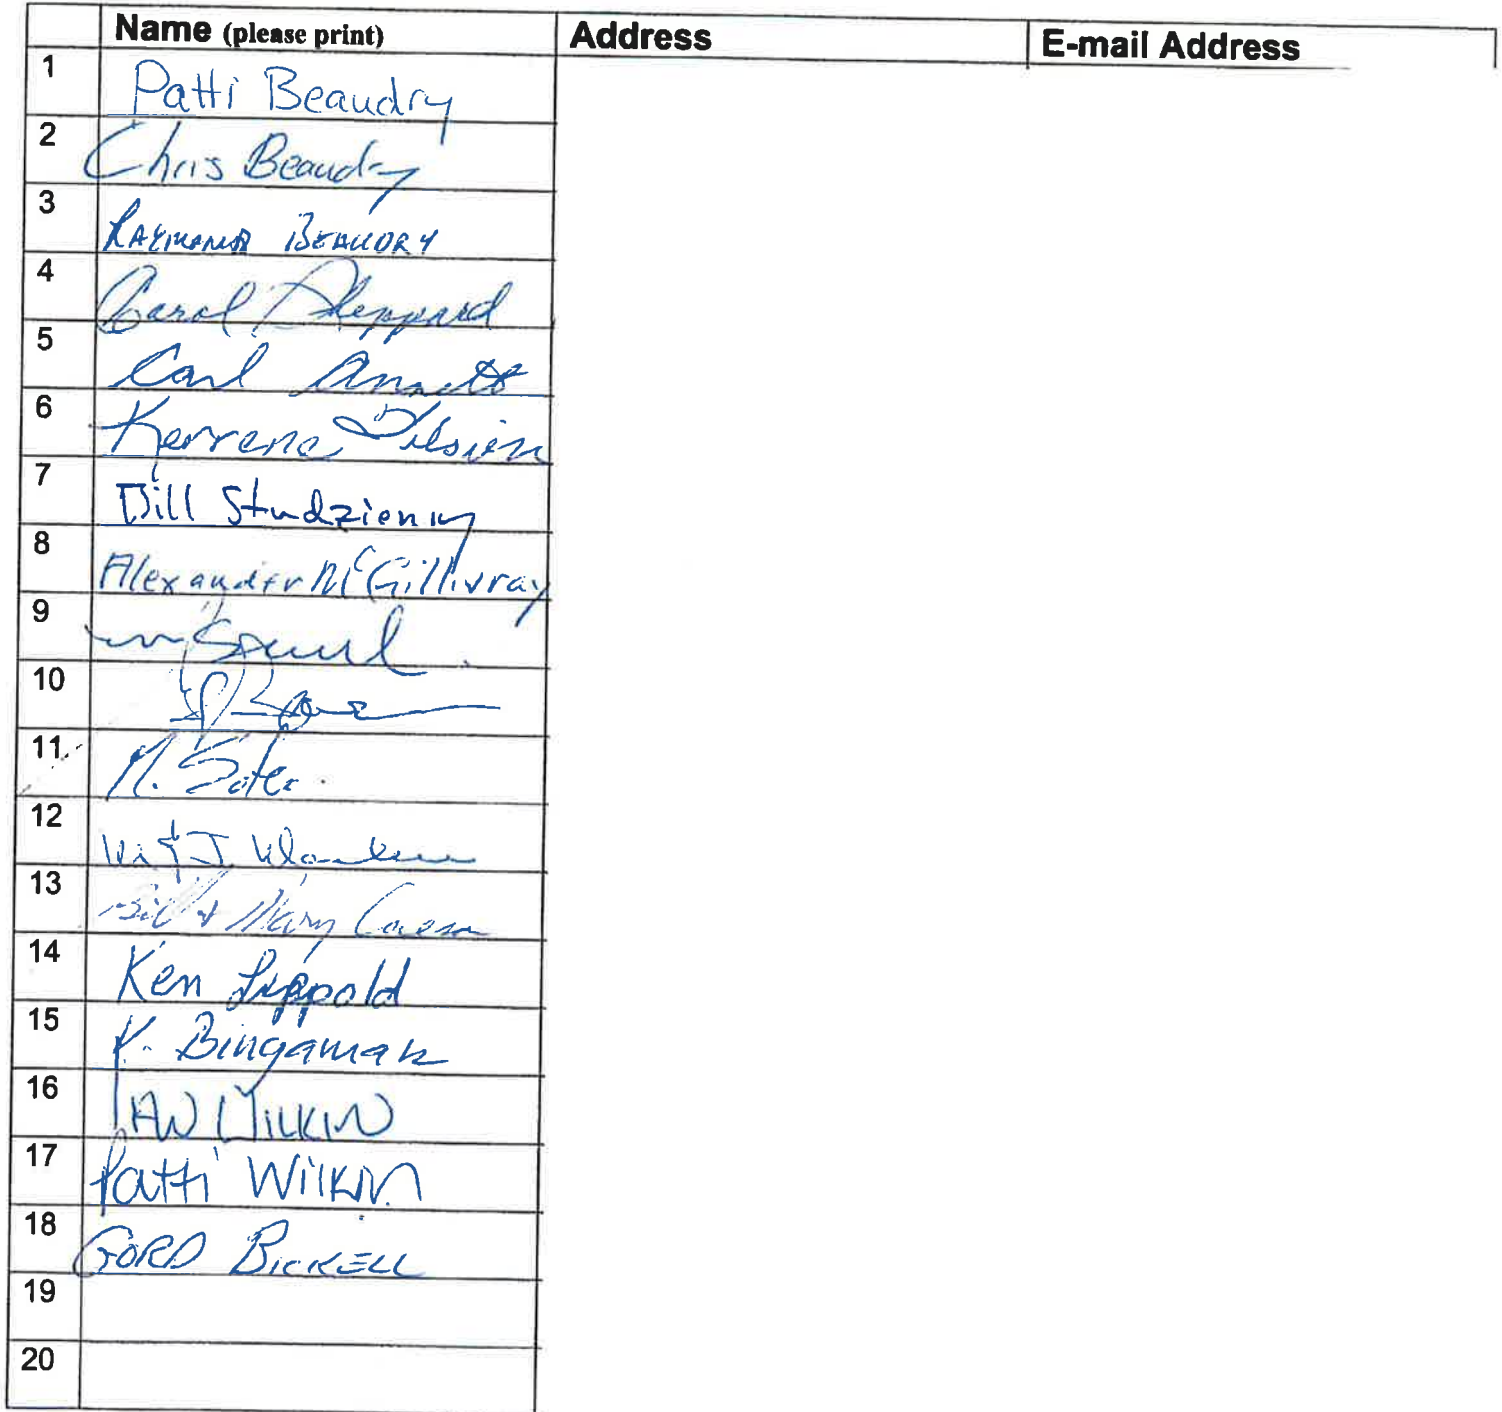 Name (please print) Address E-mail Address
1 Patti Beaudry
2 Chris Beaudry
3 RAYMOND BEAUDRY
4 Carol Sheppard
5 Carl Annett
6 Kerrene
7 Bill Studzienny
8 Alexander McGillivray
9
10
11 M.
12 & J.
13 Bill & Mary
14 Ken Lippold
15 K. Bingaman
16 IAN WILKIN
17 Patti Wilkin
18 GORD BICKELL
19
20